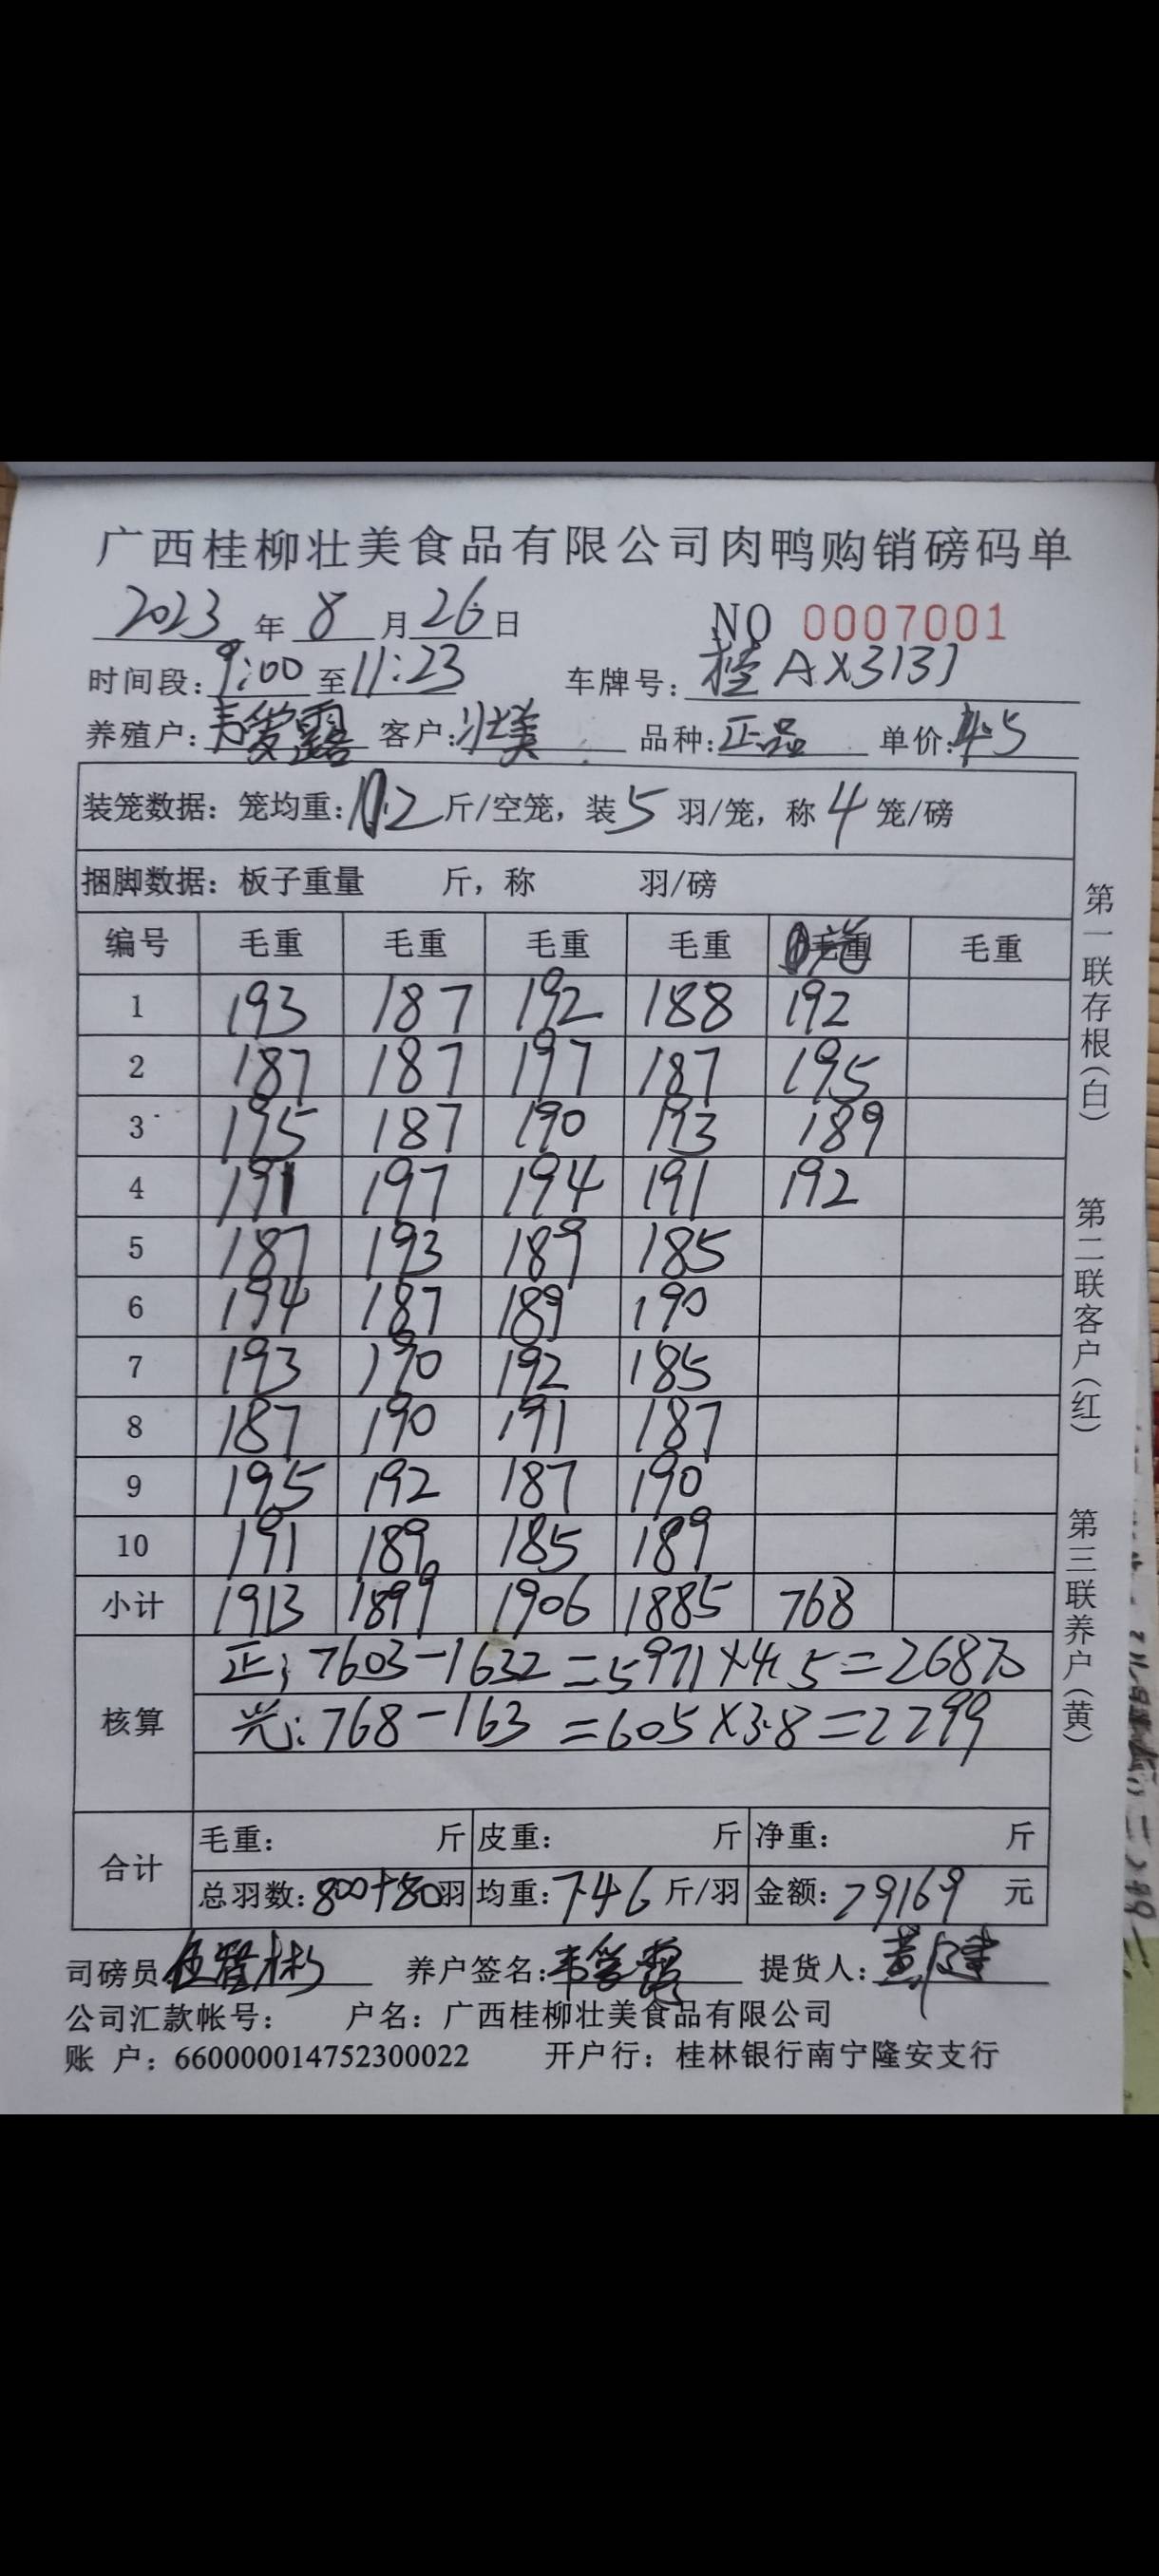 广西桂柳壮美食品有限公司肉鸭购销磅码单
2023年8月26日 NO 0007001
时间段:9:00至11:23 车牌号:桂AX3131
养殖户:韦爱露 客户:壮美 品种:正品 单价:4.5
装笼数据:笼均重:10.2斤/空笼,装5羽/笼,称4笼/磅
捆脚数据:板子重量 斤,称 羽/磅
编号 毛重 毛重 毛重 毛重 毛重
1 193 187 192 188 192
2 187 187 197 187 195
3 195 187 190 193 189
4 191 197 194 191 192
5 187 193 189 185
6 194 187 189 190
7 193 190 192 185
8 187 190 191 187
9 195 192 187 190
10 191 189 185 189
小计 1913 1899 1906 1885 768
核算
正:7603-1632=5971×4.5=26870
光:768-163=605×3.8=2299
合计
毛重: 斤 皮重: 斤 净重: 斤
总羽数:800+80羽 均重:7.46斤/羽 金额:29169元
司磅员 养户签名:韦爱露 提货人:黄健
公司汇款帐号: 户名:广西桂柳壮美食品有限公司
账 户:660000014752300022 开户行:桂林银行南宁隆安支行
第一联存根(白)
第二联客户(红)
第三联养户(黄)